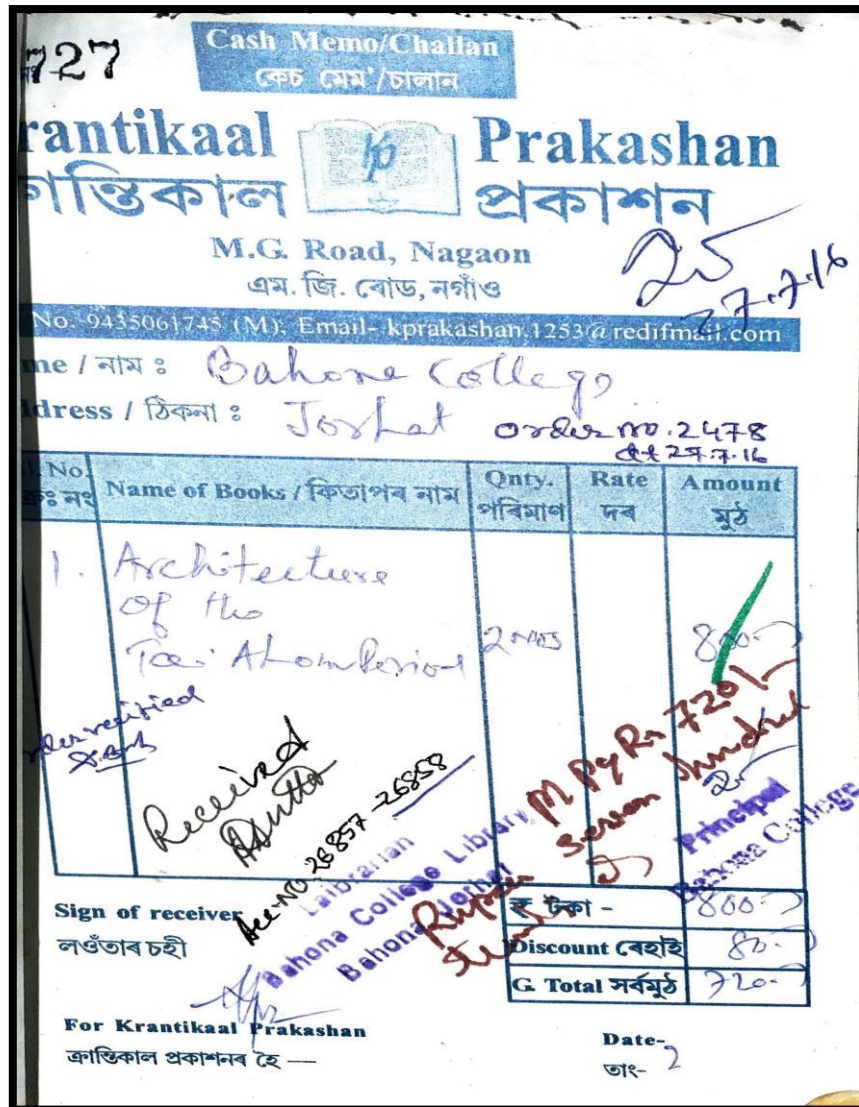 727
Cash Memo/Challan
কেচ মেম'/চালান
rantikaal kp Prakashan
ক্ৰান্তিকাল প্ৰকাশন
M.G. Road, Nagaon
এম. জি. ৰোড, নগাঁও
27.7.16
No.-9435061745 (M), Email- kprakashan.1253@redifmail.com
me / নাম ঃ Bahona College
ddress / ঠিকনা ঃ Jorhat
order no. 2478
dt 27.7.16
l. No. Name of Books / কিতাপৰ নাম Qnty. Rate Amount
ক্ৰঃ নং পৰিমাণ দৰ মুঠ
1. Architecture
of the
Tai Ahom Period 2 800
Received
Acc-No. 26857-26858
Laibrarian
Bahona College Library
Bahona, Jorhat
Py Rs 720/-
Rupees Seven hundred
Principal
Bahona College
Sign of receiver
লওঁতাৰ চহী
₹ টকা - 800
Discount ৰেহাই 80
G. Total সৰ্বমুঠ 720
For Krantikaal Prakashan
ক্ৰান্তিকাল প্ৰকাশনৰ হৈ —
Date-
তাং- 2